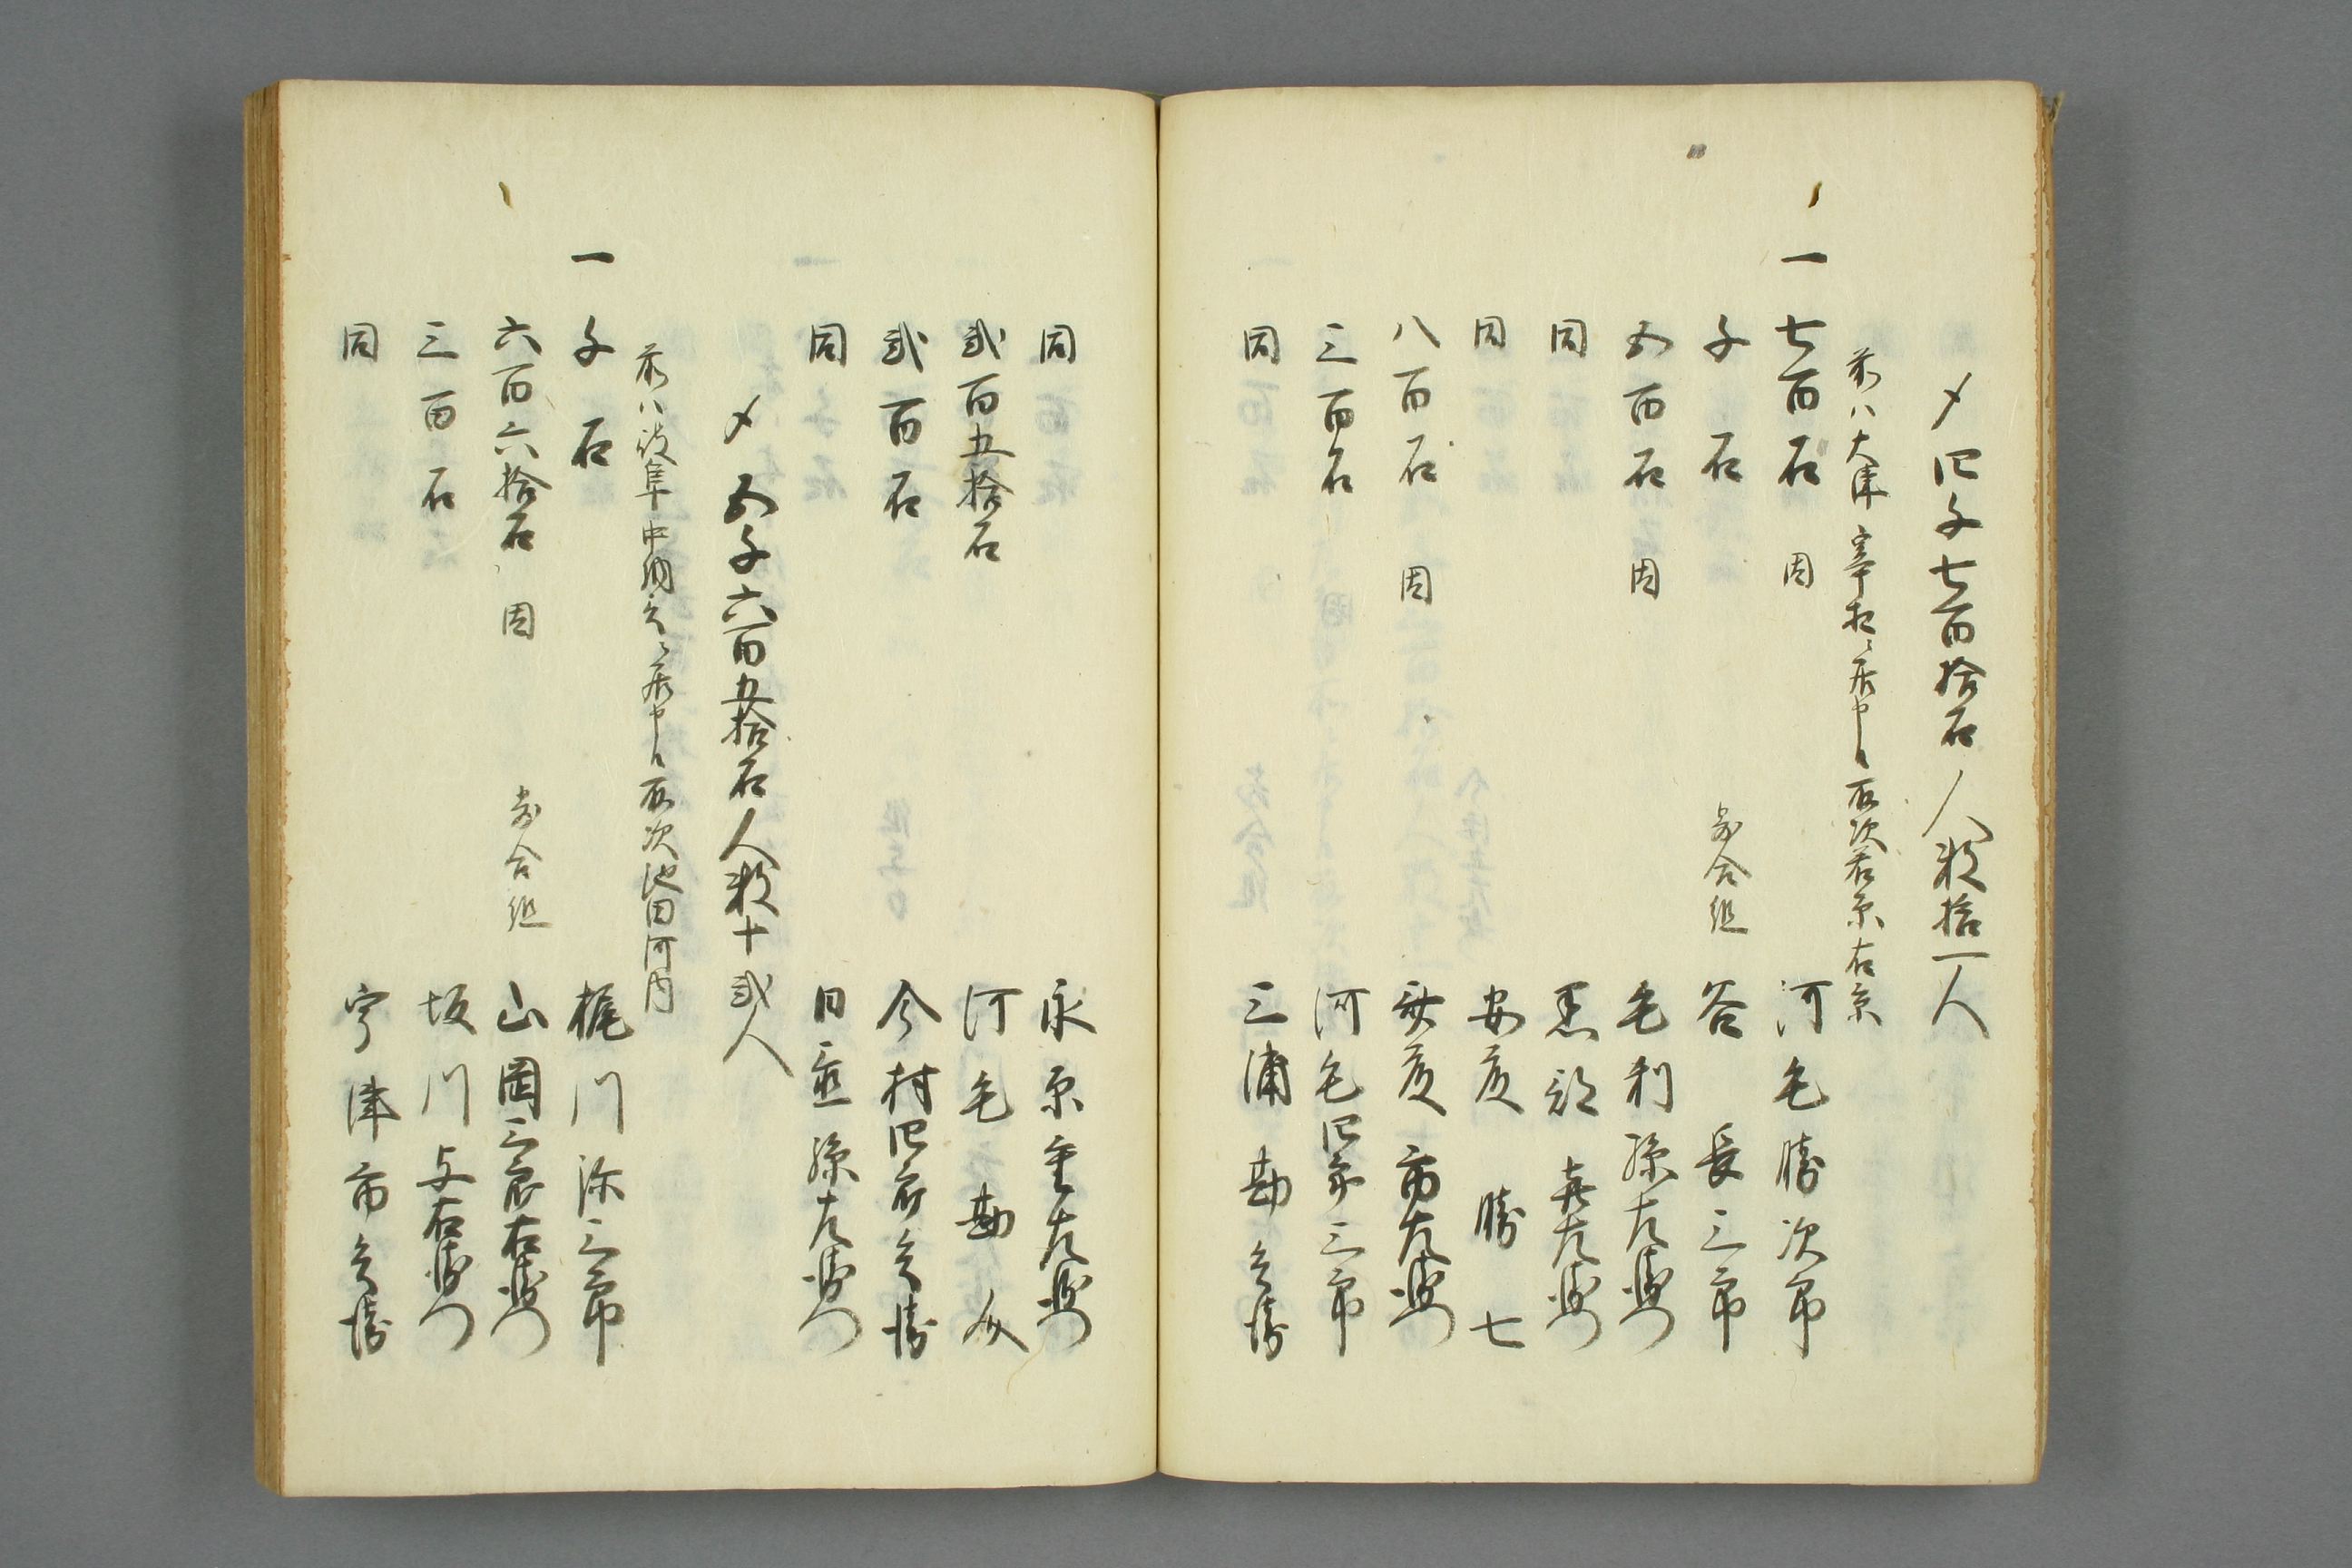 〆四千七百拾石人数拾一人
前ハ大津宰相ニ居申候取次若原右京
一七百石 同 河毛勝次郎
千石 寄合組 谷長三郎
五百石 同 毛利孫左衛門
同 喜左衛門
同 安彦勝七
八百石 同 安彦市左衛門
三百石 河毛四郎三郎
同 三浦勘兵衛
同 永原重左衛門
弐百五拾石 河毛勘介
弐百石 今村四郎兵衛
同 日並孫左衛門
〆五千六百五拾石人数十弐人
前ハ岐阜中納言ニ居申候取次池田河内
一千石 梶川弥三郎
六百六拾石 同 寄合組 山岡三郎右衛門
三百石 坂川与右衛門
同 宇津市兵衛